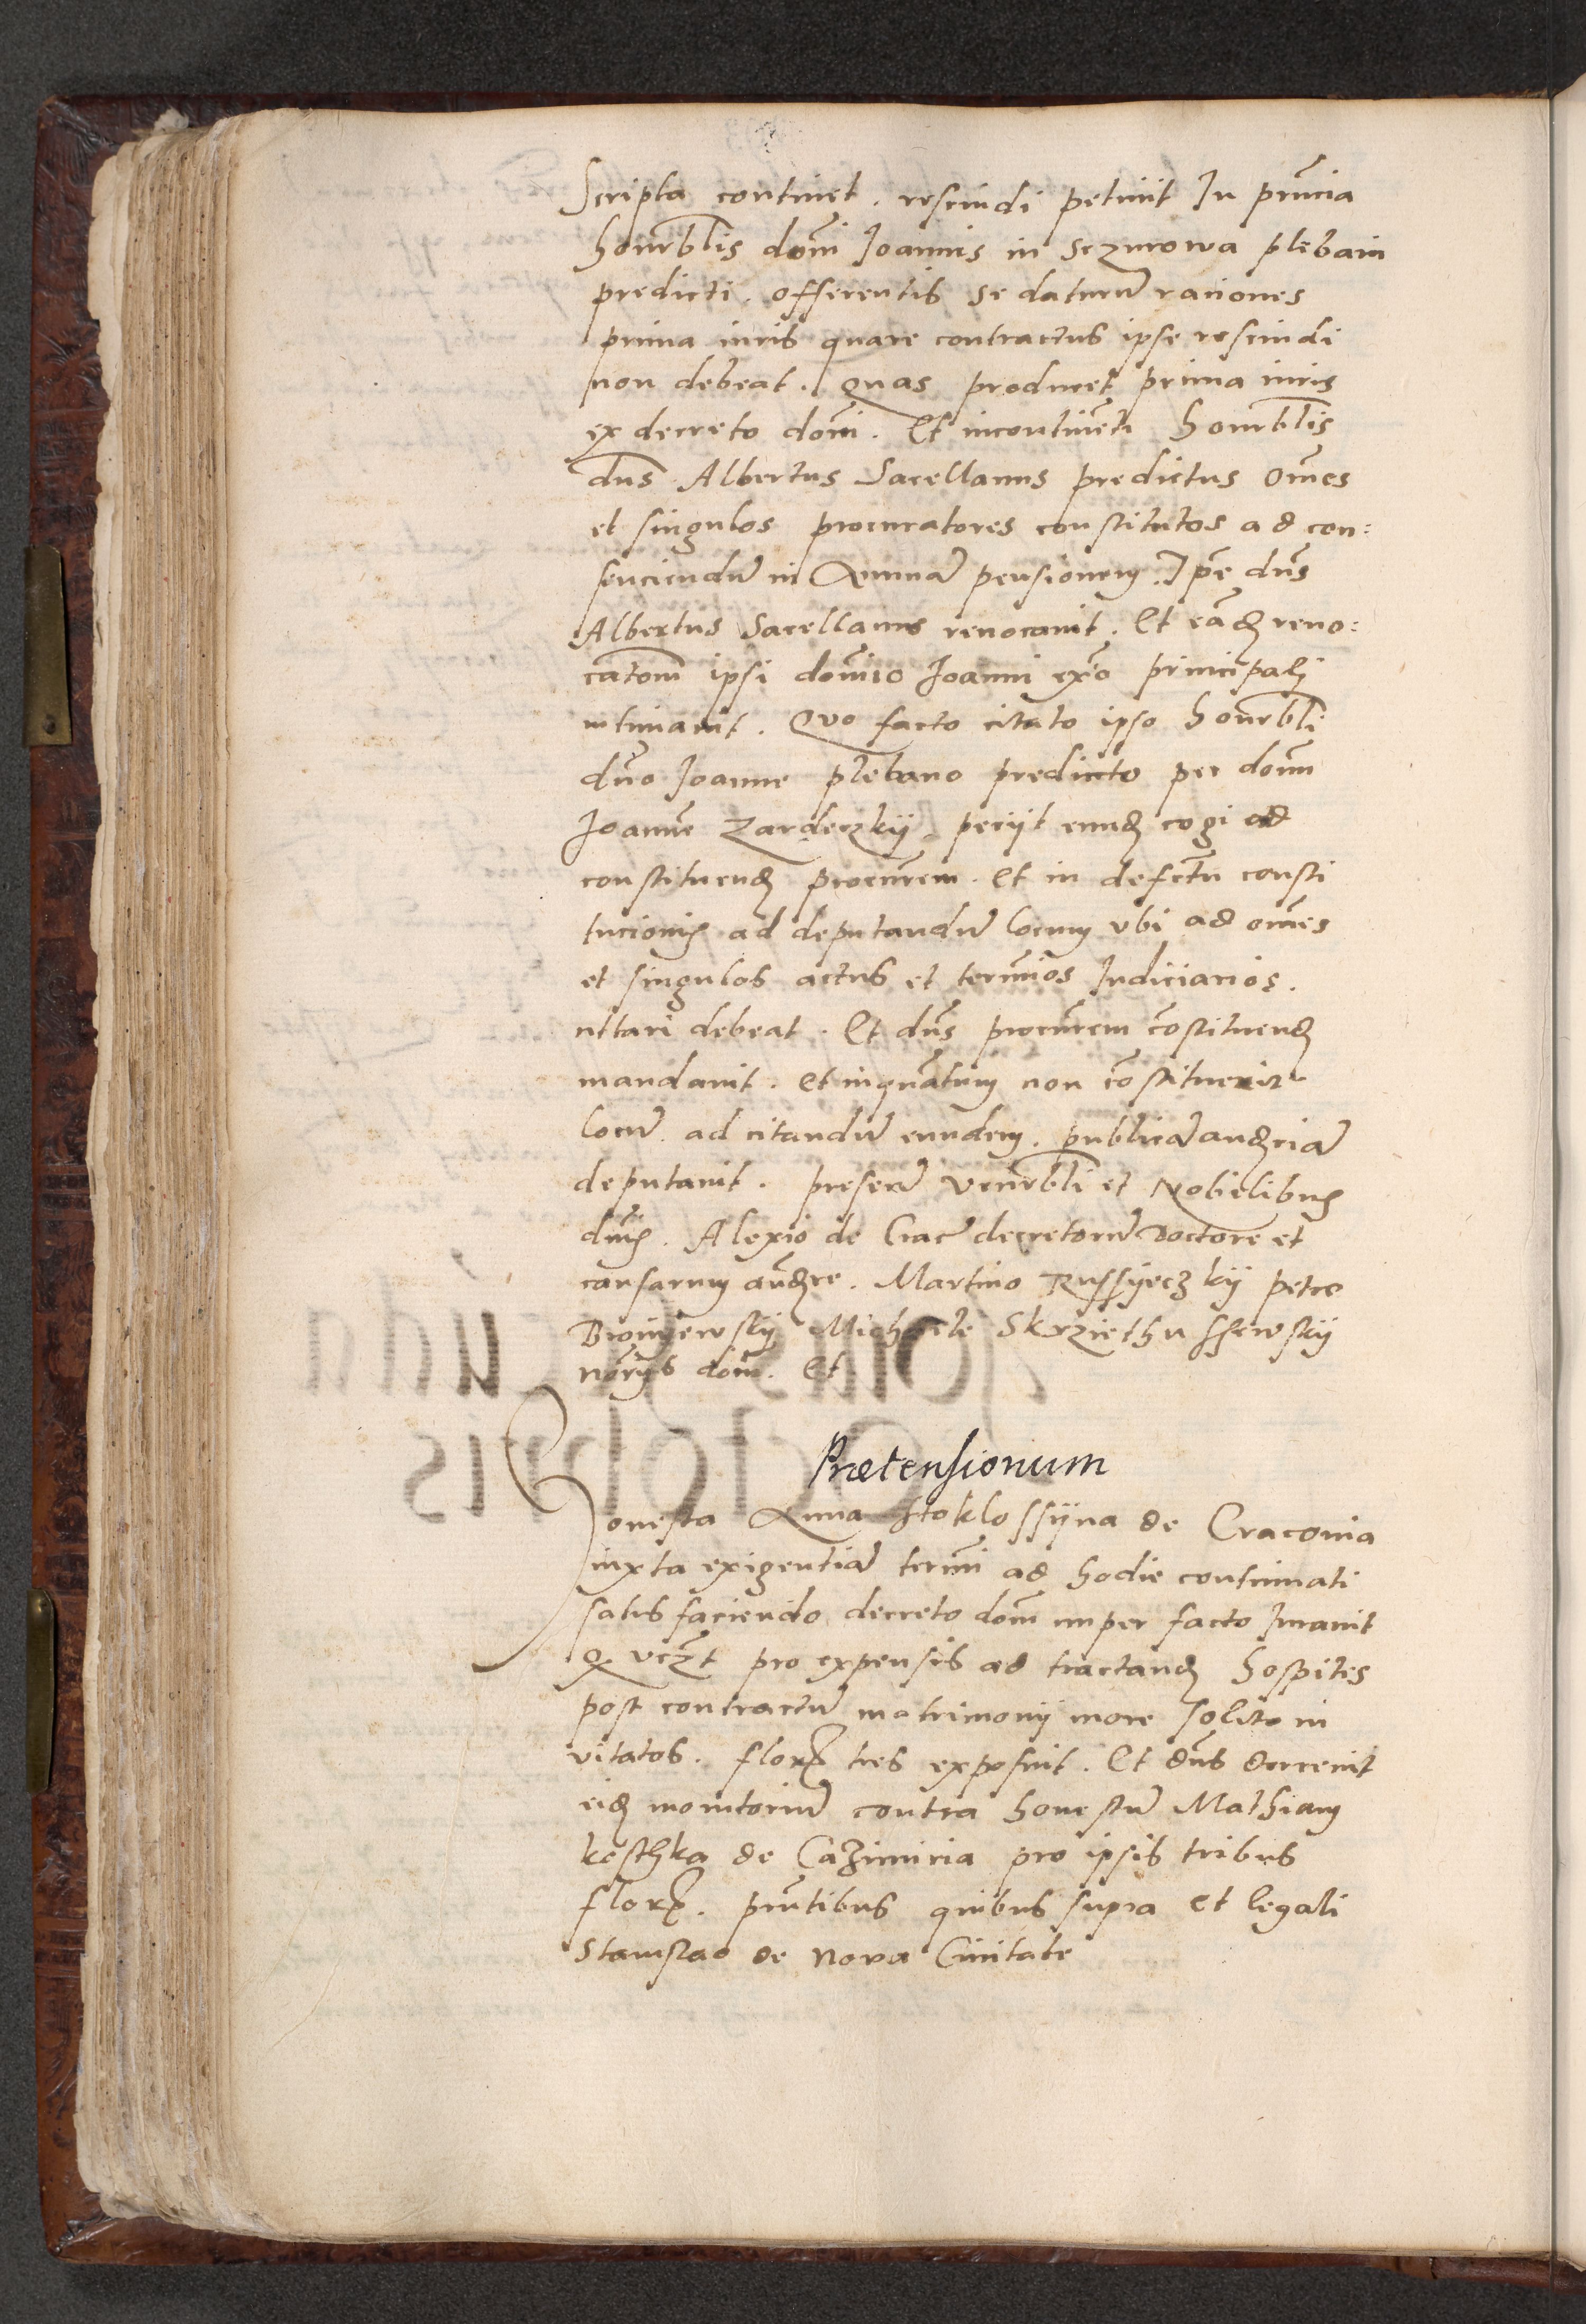 Scripta continet. rescindi petiuit In pñcia
honrblis domi Joannis in Sczurowa plebani
predicti. offerentis se daturũ raciones
prima iuris quare contractus ipse rescindi
non debeat. Quas producet prima iuris
ex decreto domi. Et incontinẽti honrblis
dns Albertus Sacellanus predictus Om̃es
et singulos procuratores constitutos ad con:
senciendũ in Annuã pensionem. Ipe dñs
Albertus Sacellanus reuocauit. Et eãdẽ reuo:
catom ipsi domino Joanni exo principali
intimauit. Quo facto citato ipso honrbli
dño Joanne plebano predicto per dom
Joannẽ Zardeczkij petijt eundẽ cogi ad
constituendẽ procurem. Et in defectu consti
tucionis ad deputandũ locum vbi ad om̃es
et singulos actus et termios Judiciarios.
cittari debeat. Et dñs procurem cõstituendẽ
mandauit. Et inquãtum non cõstituerit
locũ ad citandũ eundem. publicã audienciã
deputauit. presentĩ venrbli et Nobilibus
dñis. Alexio de Crac decretorũ Doctore et
causarum audire. Martino Russyeczkij petro
Broniewskij Michaele Skrziethussewskij
norijs dom. Et
Prætensionum
Honesta Anna Stoklossyna de Cracouia
iuxta exigentiã termi ad hodie continuati
satisfaciendo decreto dom nuper facto Jurauit
Q. vczt pro expensis ad tractandẽ hospites
post contractũ matrimonij more solito in
vitatos. flor tres exposuit. Et dñs decreuit
eidẽ monitoriũ contra honestũ Mathiam
kesthka de Cazimiria pro ipsis tribus
flor. pñtibus quibus supra et legali
Stanislao de Noua Ciuitate